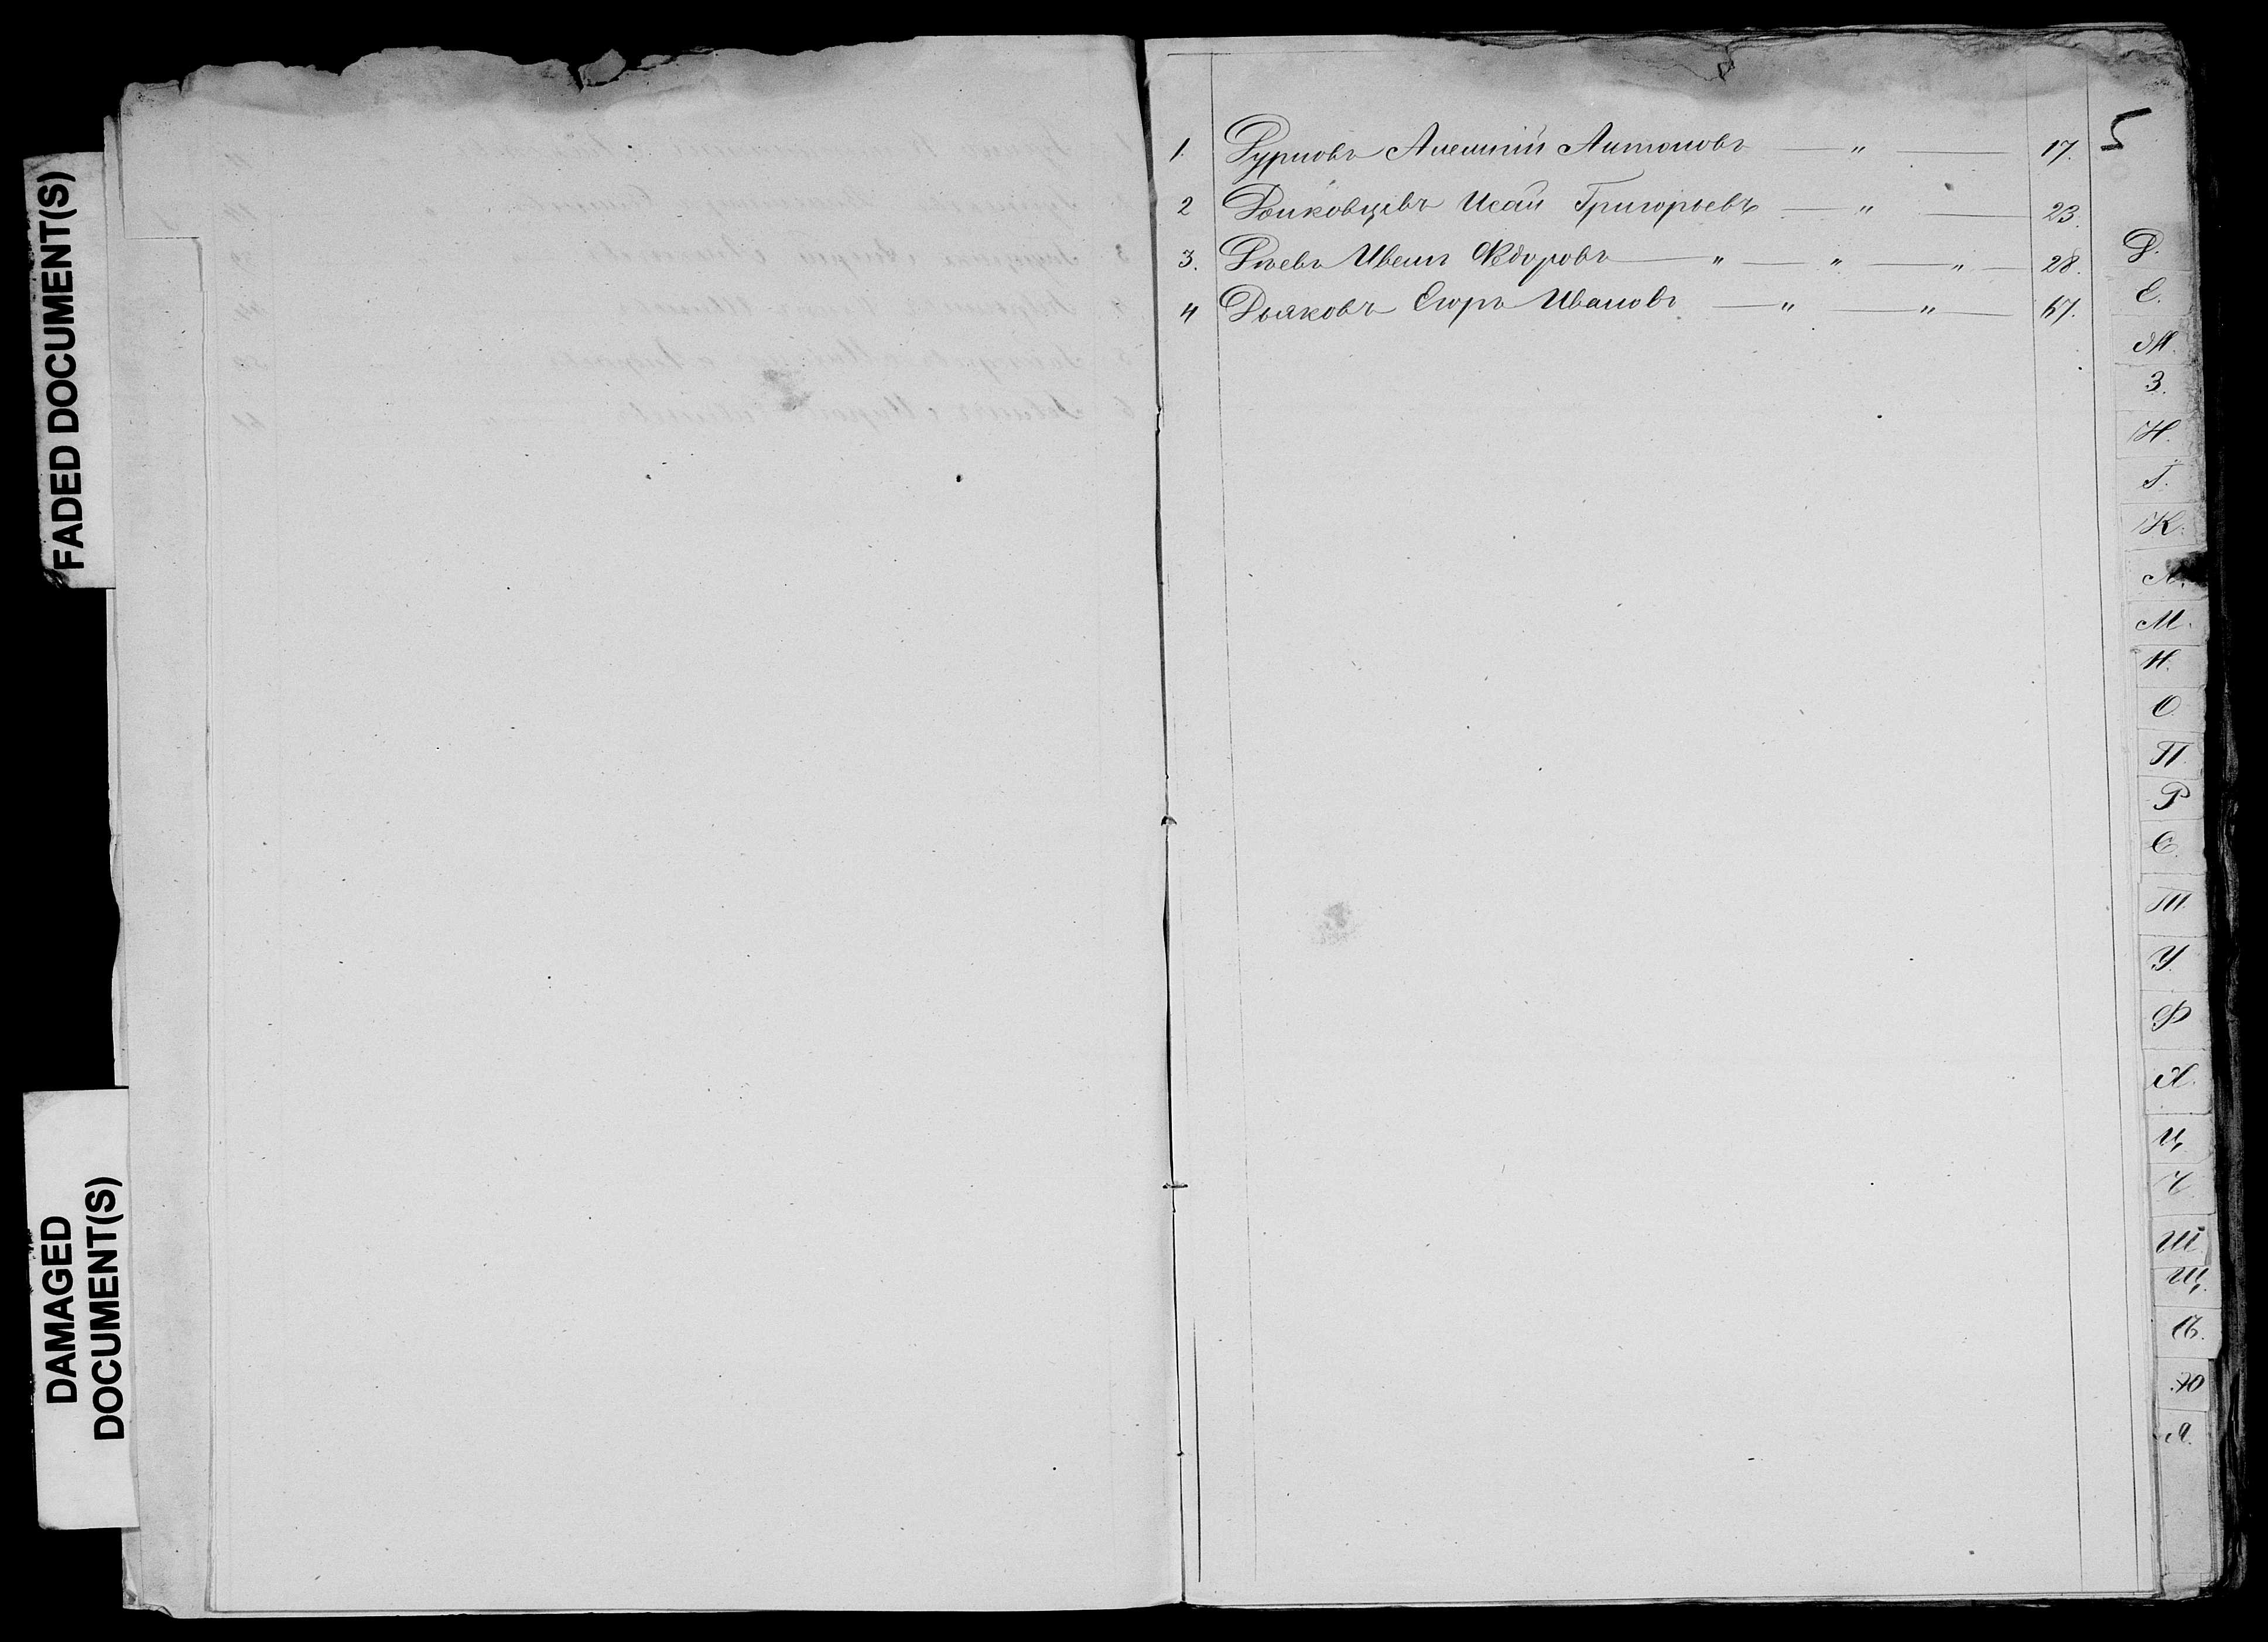 FADED DOCUMENT(S)
DAMAGED
DOCUMENT(S)
5
1. Дурновъ Алексѣй Антоновъ — " — 17.
2 Дьяковцевъ Исай Григорьевъ — " — 23.
3. Дѣевъ Иванъ Ѳедоровъ — " — " — " — 28.
4 Дьяковъ Егоръ Ивановъ — " — " — 67.
Д.
Е.
Ж.
З.
И.
І.
К.
Л.
М.
Н.
О.
П.
Р
С.
Т.
У.
Ф
Х.
Ц.
Ч.
Ш
Щ.
Ю
Я.